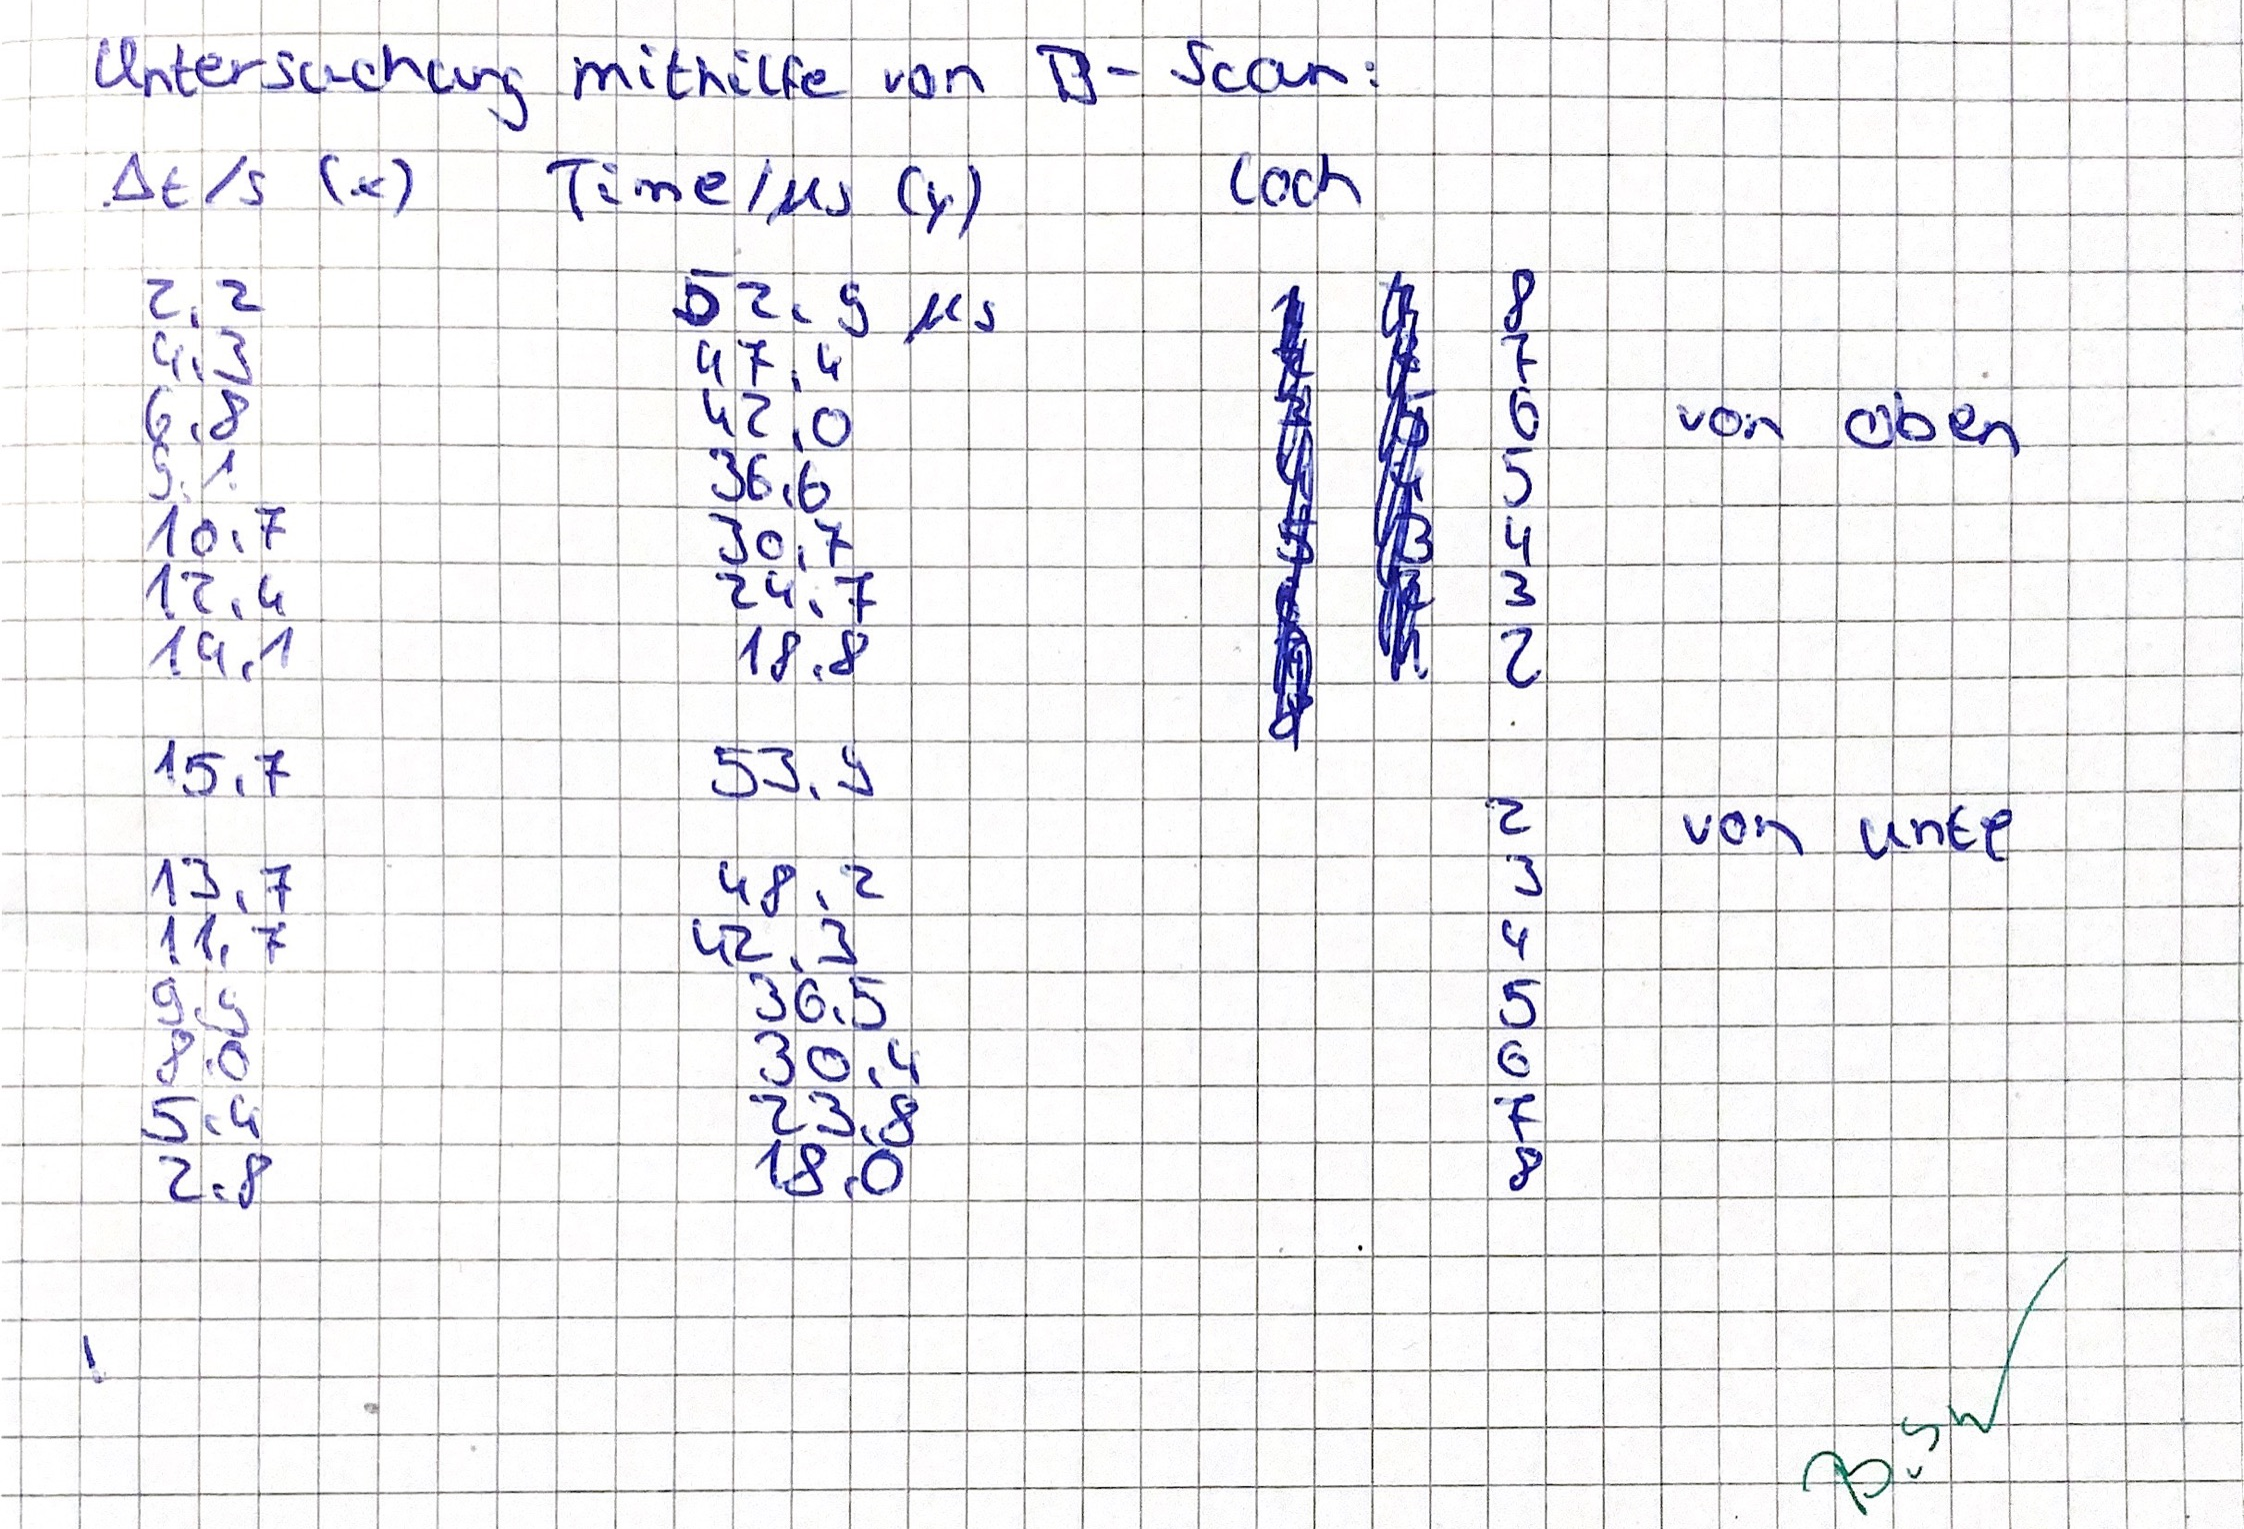 Untersuchung mithilfe von B-Scan:
Δt/s (x) Time/μs (y) Loch
2.2 52.9 μs 8
4.3 47.4 7
6.8 42.0 6 von oben
9.1 36.6 5
10.7 30.7 4
12.4 24.7 3
14.1 18.8 2
15.7 53.9
2 von unte
13.7 48.2 3
11.7 42.3 4
9.9 36.5 5
8.0 30.4 6
5.4 23.8 7
2.8 18.0 8